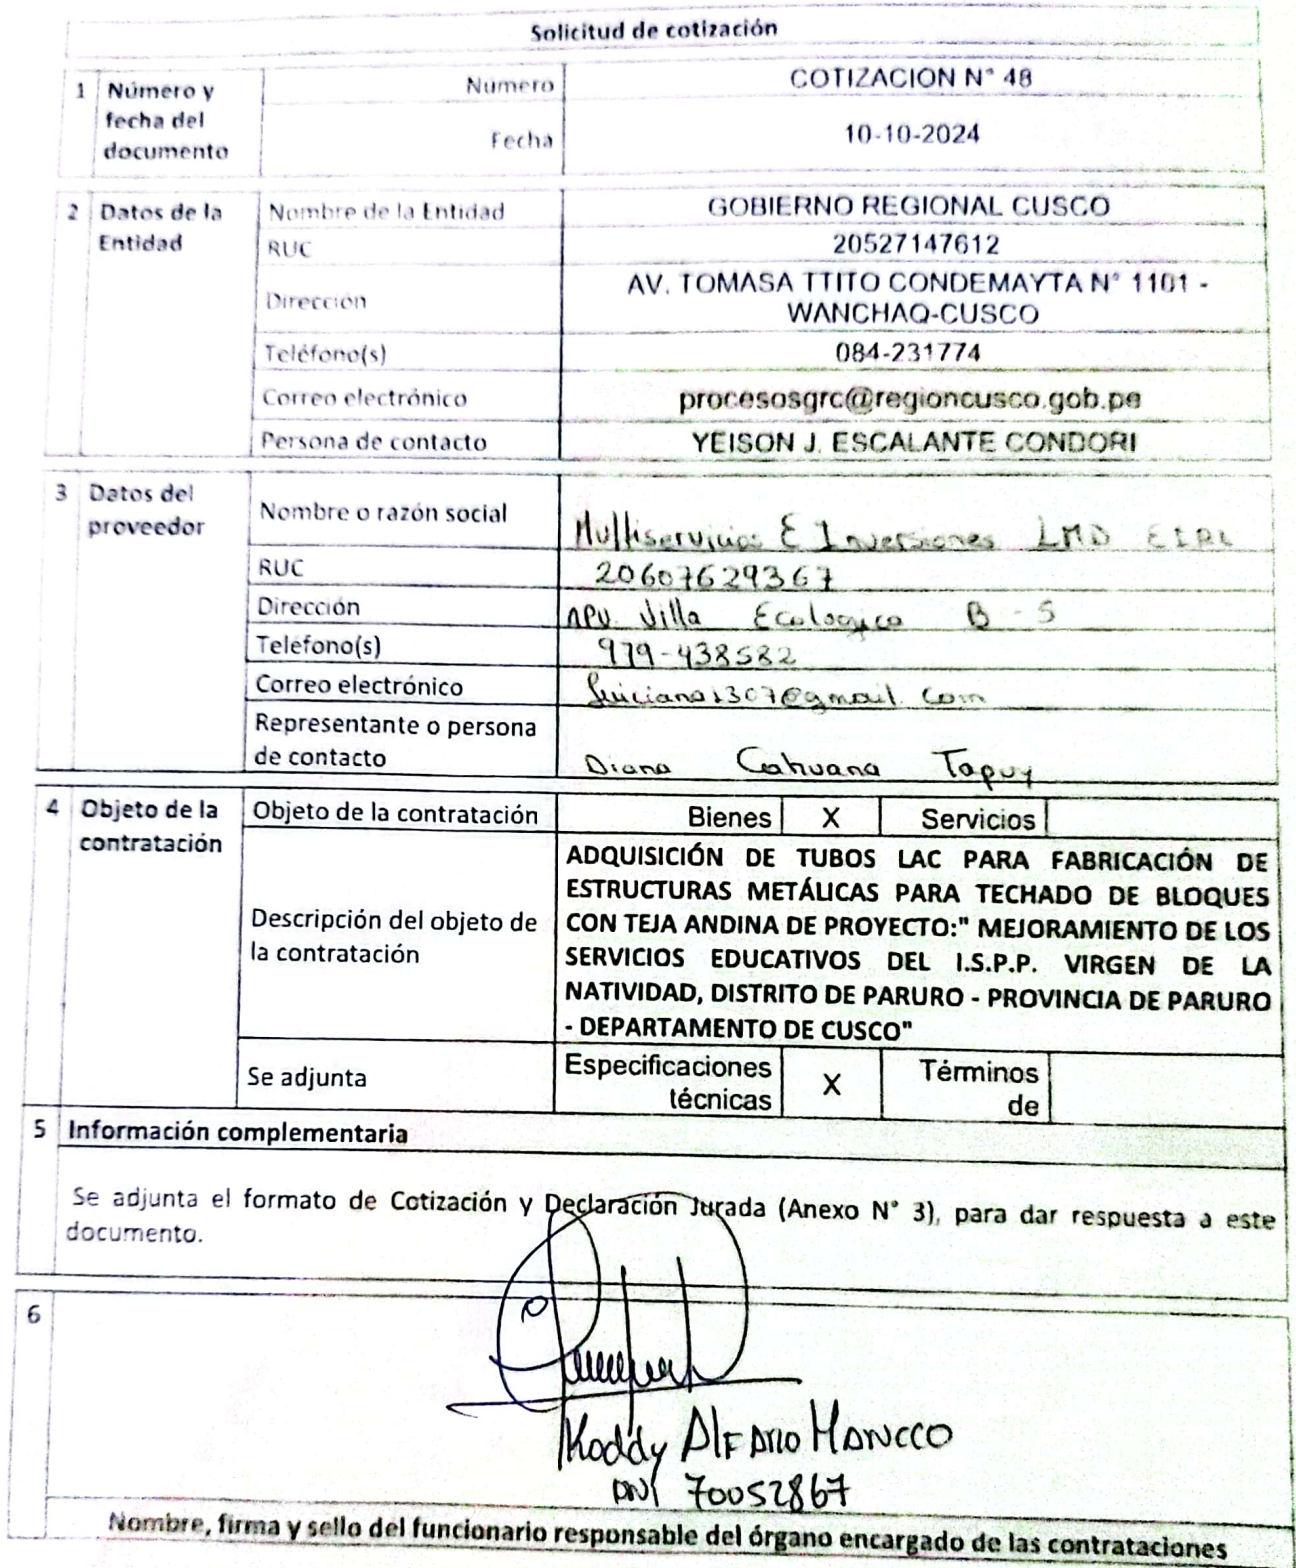 Solicitud de cotización
1 Número y fecha del documento
Número COTIZACION N° 48
Fecha 10-10-2024
2 Datos de la Entidad
Nombre de la Entidad GOBIERNO REGIONAL CUSCO
RUC 20527147612
Dirección AV. TOMASA TTITO CONDEMAYTA N° 1101 -
WANCHAQ-CUSCO
Teléfono(s) 084-231774
Correo electrónico procesosgrc@regioncusco.gob.pe
Persona de contacto YEISON J. ESCALANTE CONDORI
3 Datos del proveedor
Nombre o razón social Multiservicios E Inversiones LMD EIRL
RUC 20607629367
Dirección APV. Villa Ecologica B - 5
Telefono(s) 979-438582
Correo electrónico @gmail.com
Representante o persona
de contacto Diana Cahuana Tapuy
4 Objeto de la contratación
Objeto de la contratación Bienes X Servicios
Descripción del objeto de
la contratación
ADQUISICIÓN DE TUBOS LAC PARA FABRICACIÓN DE
ESTRUCTURAS METÁLICAS PARA TECHADO DE BLOQUES
CON TEJA ANDINA DE PROYECTO:" MEJORAMIENTO DE LOS
SERVICIOS EDUCATIVOS DEL I.S.P.P. VIRGEN DE LA
NATIVIDAD, DISTRITO DE PARURO - PROVINCIA DE PARURO
- DEPARTAMENTO DE CUSCO"
Se adjunta Especificaciones técnicas X Términos de
5 Información complementaria
Se adjunta el formato de Cotización y Declaración Jurada (Anexo N° 3), para dar respuesta a este
documento.
6
Koddy Alfaro Mancco
DNI 70052867
Nombre, firma y sello del funcionario responsable del órgano encargado de las contrataciones